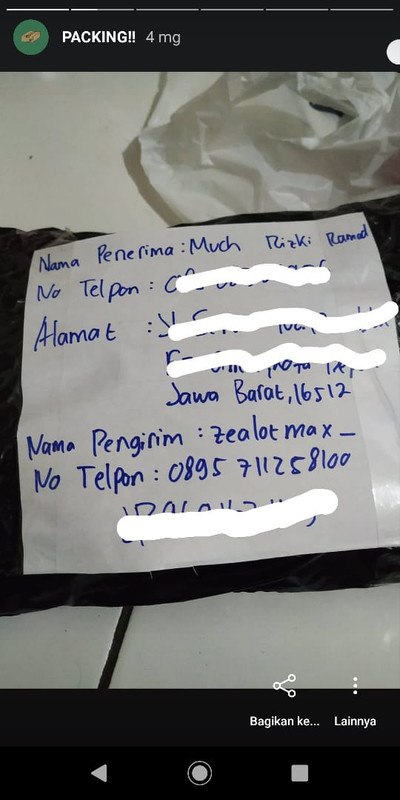 PACKING!! 4 mg
Nama Penerima : Much Rizki Ramad
No Telpon :
Alamat :
Jawa Barat, 16512
Nama Pengirim : zealotmax_
No Telpon : 0895 711258100
Bagikan ke... Lainnya